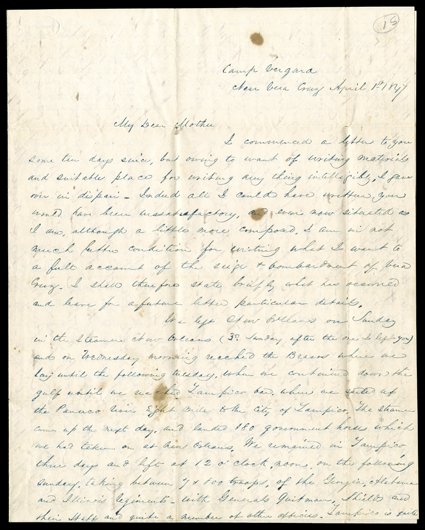 18
Camp Vergara
Near Vera Cruz April 1st 1847
My Dear Mother
I commenced a letter to you
some ten days since, but owing to want of writing materials
and suitable place for writing any thing intelligibly, I gave
over in dispair - Indeed all I could have written you
would have been unsatisfactory, and even now situated as
I am, although a little more composed, I am in not
much better condition for writing what I want to
a full account of the seige & bombardment of Vera
Cruz. I shall therefore state briefly what has occurred
and leave for a future letter particular details.
We left New Orleans on Sunday
in the steamer New Orleans (3d Sunday after the one I left you)
and on Wednesday morning reached the Brazos where we
lay until the following tuesday, when we continued down the
gulf until we reached Tampico bar, where we
the Panuco river Eight mile to the City of Tampico. The steamer
came up the next day, and landed 180 government horses which
we had taken on at New Orleans. We remained in Tampico
three days and left at 12 o'clock, noon, on the following
Sunday, taking between 7 & 800 troops, of the Georgia, Alabama
and Illinois regiments - with Generals Quitman, Shields and
their staff and quite a number of other officers. Tampico is quite